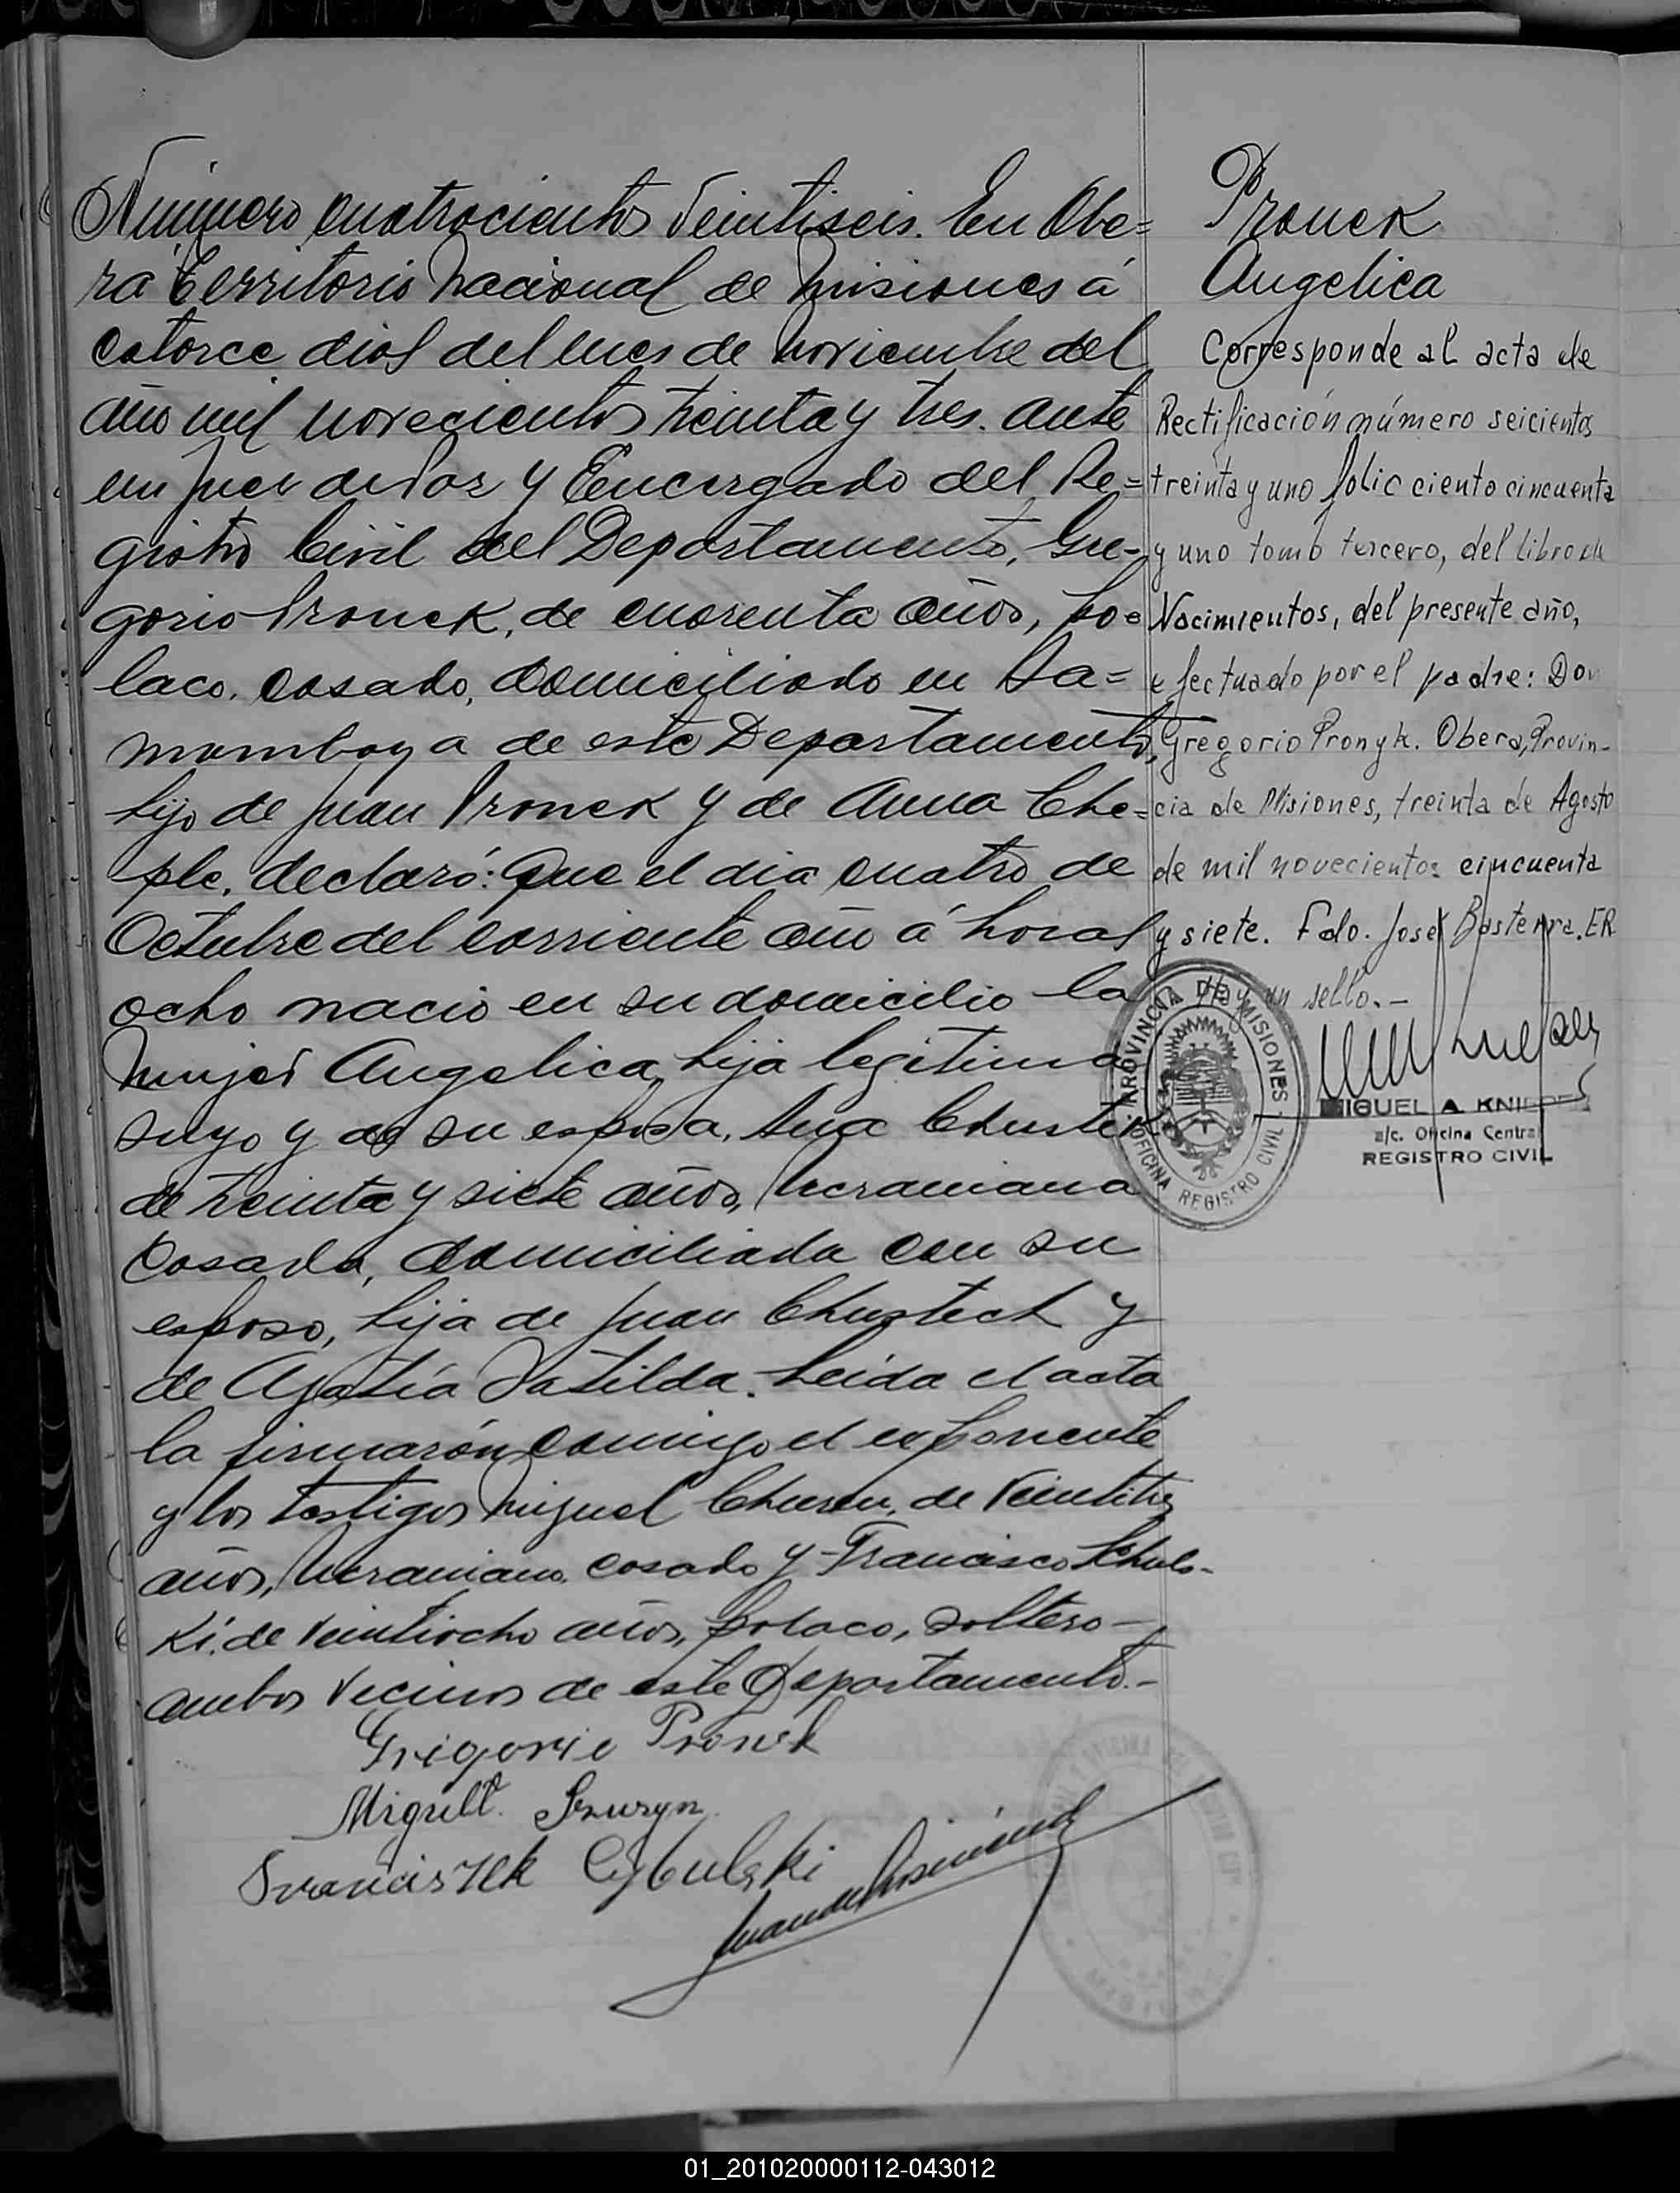 Número cuatrocientos Veintiseis. En Obe=
rá Territorio Nacional de Misiones á
catorce dias del mes de Noviembre del
año mil novecientos treinta y tres. ante
mi Juez de Paz y Encargado del Re=
gistro Civil del Departamento, Gre-
gorio Pronek, de cuarenta años, po=
laco, casado, domiciliado en Sa=
mambaya de este Departamento,
hijo de Juan Pronek y de Anna Che=
ple, declaró: Que el dia cuatro de
Octubre del corriente año á horas
ocho nació en su domicilio la
mujer Angelica, hija legitima
suyo y de su esposa, Ana Chustek
de treinta y siete años, Ucraniana
Casada, domiciliada con su
esposo, hija de Juan Chustech y
de Agatía Datilda. Leída el acta
la firmarón conmigo el exponente
y los testigos Miguel Churen, de Veintitres
años, Ucraniano, casado y Francisco Schuls-
ki, de veintiocho años, polaco, soltero—
ambos Vecinos de este Departamento.-
Grigorie Pronek
Miguel
Franciszek Cybulski
Pronek
Angelica
Corresponde al acta de
Rectificación número seicientos
treinta y uno folio ciento cincuenta
y uno tomo tercero, del libro de
Nacimientos, del presente año,
efectuado por el padre: Don
Gregorio Pronyk. Obera, Provin-
cia de Misiones, treinta de Agosto
de mil novecientos cincuenta
y siete. Fdo. José Basterra. ER
Hay un sello.-
PROVINCIA DE MISIONES
OFICINA REGISTRO CIVIL
MIGUEL A.
a/c. Oficina Central
REGISTRO CIVIL
01_201020000112-043012